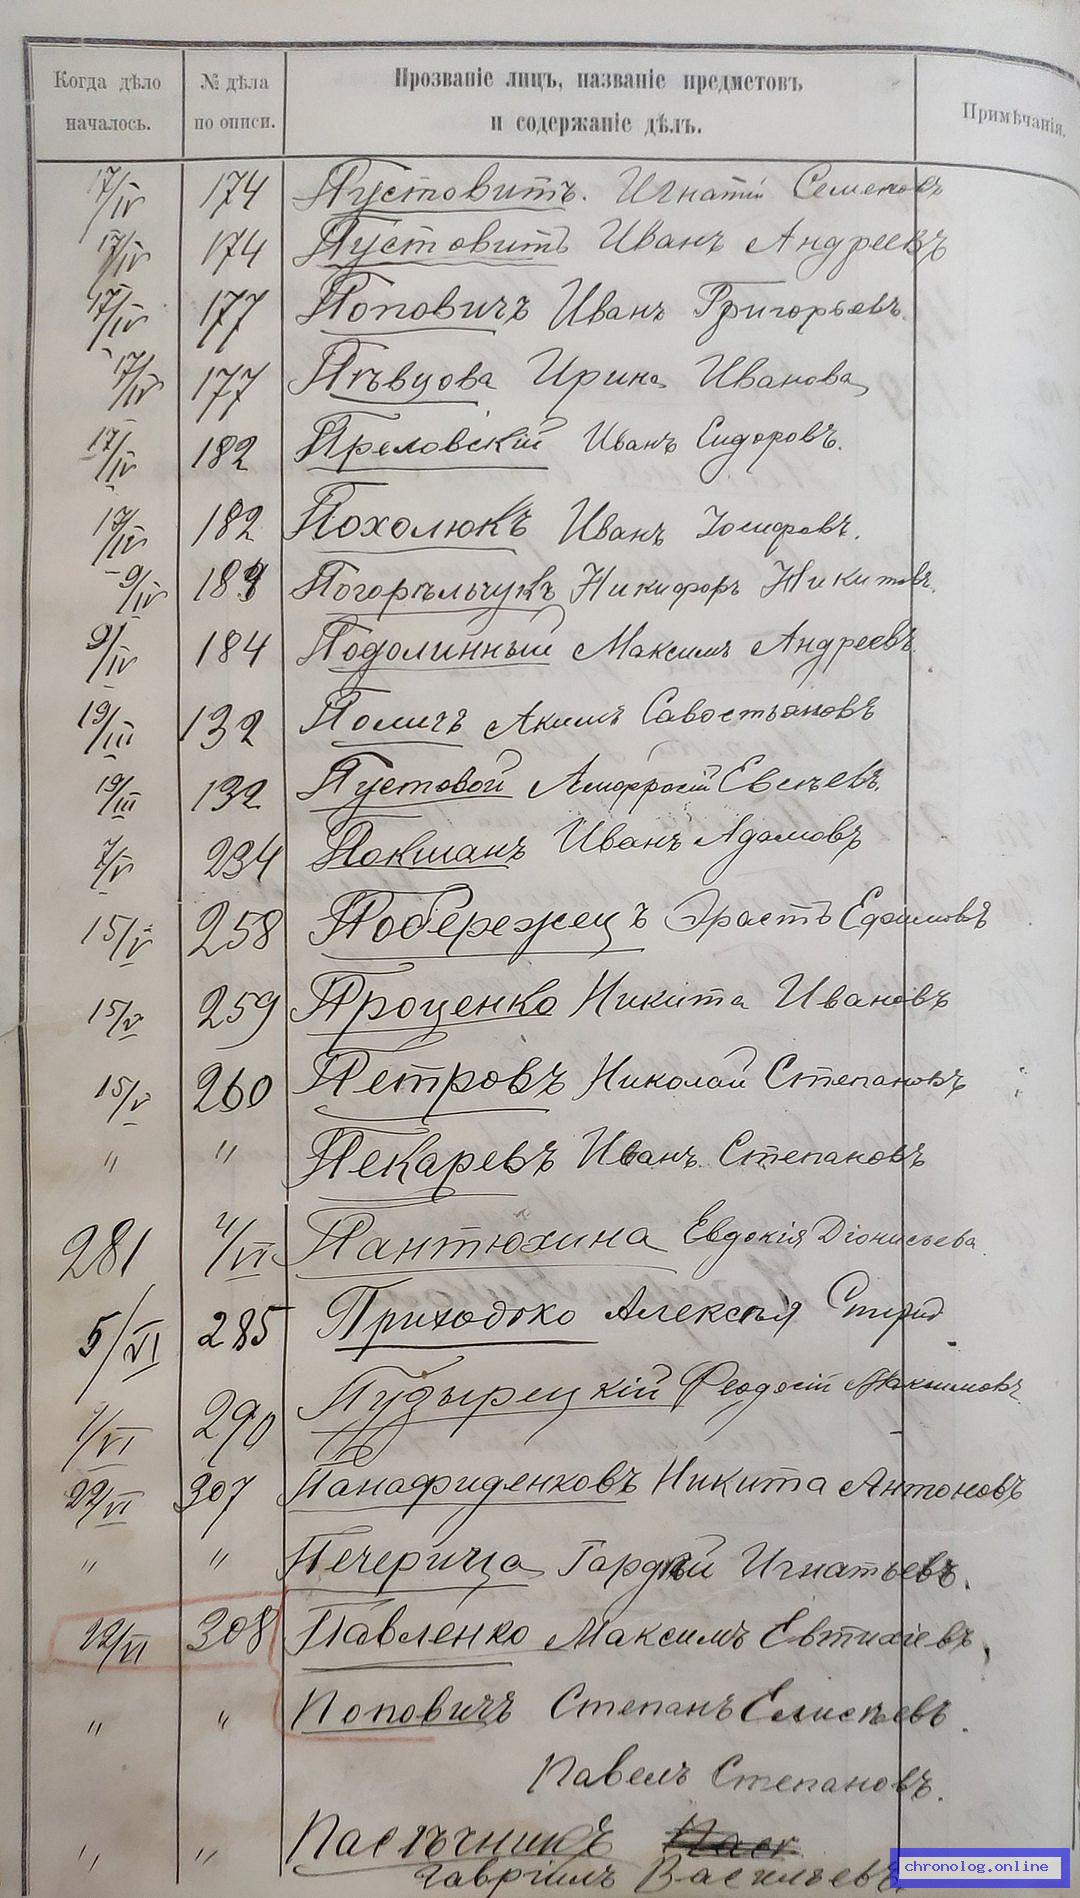 Когда дѣло началось.
№ дѣла по описи.
Прозваніе лицъ, названіе предметовъ
и содержаніе дѣлъ.
Примѣчанія.
17/IV 174 Пустовитъ. Игнатій Семеновъ
17/IV 174 Пустовитъ Иванъ Андреевъ
17/IV 177 Поповичъ Иванъ Григорьевъ.
17/IV 177 Пѣвцова Ирина Иванова
17/IV 182 Преловскій Иванъ Сидоровъ.
17/IV 182 Похолюкъ Иванъ Іосифовъ.
9/IV 183 Погорѣльчукъ Никифоръ Никитовъ.
9/IV 184 Подолинный Максимъ Андреевъ.
19/III 132 Поличъ Акимъ Савостьяновъ
19/III 132 Пустовой Амфросій Евсѣевъ.
7/V 234 Покшанъ Иванъ Адамовъ
15/V 258 Побережецъ Эрастъ Ефимовъ
15/V 259 Проценко Никита Ивановъ
15/V 260 Петровъ Николай Степановъ
" " Пекаревъ Иванъ Степановъ
281 4/VI Пантюхина Евдокія Діонисьева.
5/VI 285 Приходько Алексѣя Спирид
/VI 290 Пудырецкій Феодосій Максимовъ
22/VI 307 Панафиденковъ Никита Антоновъ
" " Печерица Гордѣй Игнатьевъ.
22/VI 308 Павленко Максимъ Евтихіевъ.
" " Поповичъ Степанъ Елисѣевъ.
Павелъ Степановъ.
" " Пасѣчникъ
Гавріилъ Васильевъ
chronolog.online